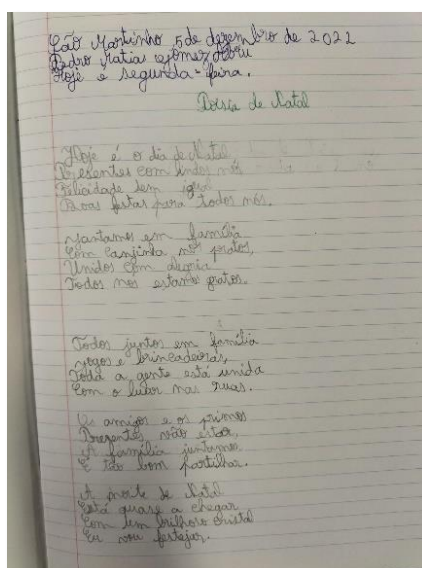 São Martinho 5 de dezembro de 2022
Pedro Matias Gomez Abreu
Hoje é segunda-feira.
Poesia de Natal
Hoje é o dia de Natal
Presentes com lindos nós
Felicidade sem igual
Boas festas para todos nós.
Jantamos em família
Com canjinha nos pratos,
Unidos com alegria
Todos nos estamos gratos.
Todos juntos em família
jogos e brincadeiras,
Toda a gente está unida
Com o luar nas ruas.
Os amigos e os primos
Presentes vão estar,
A família juntamos
É tão bom partilhar.
A noite de Natal
Está quase a chegar
Com um brilhoso cristal
Eu vou festejar.